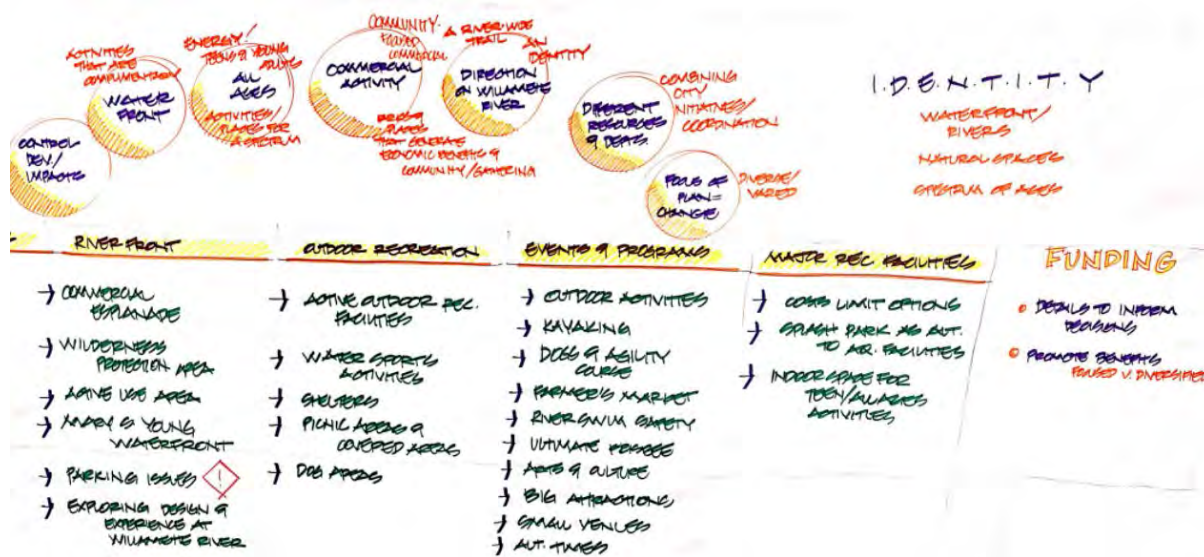 ACTIVITIES
THAT ARE
COMPLIMENTARY
WATER
FRONT
CONTROL
DEV./
IMPACTS
ENERGY!
TEENS & YOUNG
ADULTS
ALL
AGES
ACTIVITIES/
PLACES FOR
A SPECTRUM
COMMUNITY-
FOCUSED
COMMERCIAL
COMMERCIAL
ACTIVITY
PLACES
THAT GENERATE
ECONOMIC BENEFITS &
COMMUNITY/GATHERING
A RIVER-WIDE
TRAIL
AN
IDENTITY
DIRECTION
ON WILLAMETTE
RIVER
DIFFERENT
RESOURCES
& DEPTS.
COMBINING
CITY
INITIATIVES/
COORDINATION
FOCUS OF
PLAN=
CHANGE
DIVERSE/
VARIED
I.D.E.N.T.I.T.Y
WATERFRONT/
RIVERS
NATURAL SPACES
SPECTRUM OF AGES
RIVERFRONT
→ COMMERCIAL
ESPLANADE
→ WILDERNESS
PROTECTION AREA
→ ACTIVE USE AREA
→ MARY S YOUNG
WATERFRONT
→ PARKING ISSUES !
→ EXPLORING DESIGN &
EXPERIENCE AT
WILLAMETTE RIVER
OUTDOOR RECREATION
→ ACTIVE OUTDOOR REC.
FACILITIES
→ WATER SPORTS
ACTIVITIES
→ SHELTERS
→ PICNIC AREAS &
COVERED AREAS
→ DOG AREAS
EVENTS & PROGRAMS
→ OUTDOOR ACTIVITIES
→ KAYAKING
→ DOGS & AGILITY
COURSE
→ FARMER'S MARKET
→ RIVER SWIM SAFETY
→ ULTIMATE FRISBEE
→ ARTS & CULTURE
→ BIG ATTRACTIONS
→ SMALL VENUES
→ ALT. TIMES
MAJOR REC. FACILITIES
→ COSTS LIMIT OPTIONS
→ SPLASH PARK AS ALT.
TO AQ. FACILITIES
→ INDOOR SPACE FOR
TEEN/ALL AGES
ACTIVITIES
FUNDING
• DETAILS TO INFORM
DECISIONS
• PROMOTE BENEFITS
FOCUSED V. DIVERSIFIED